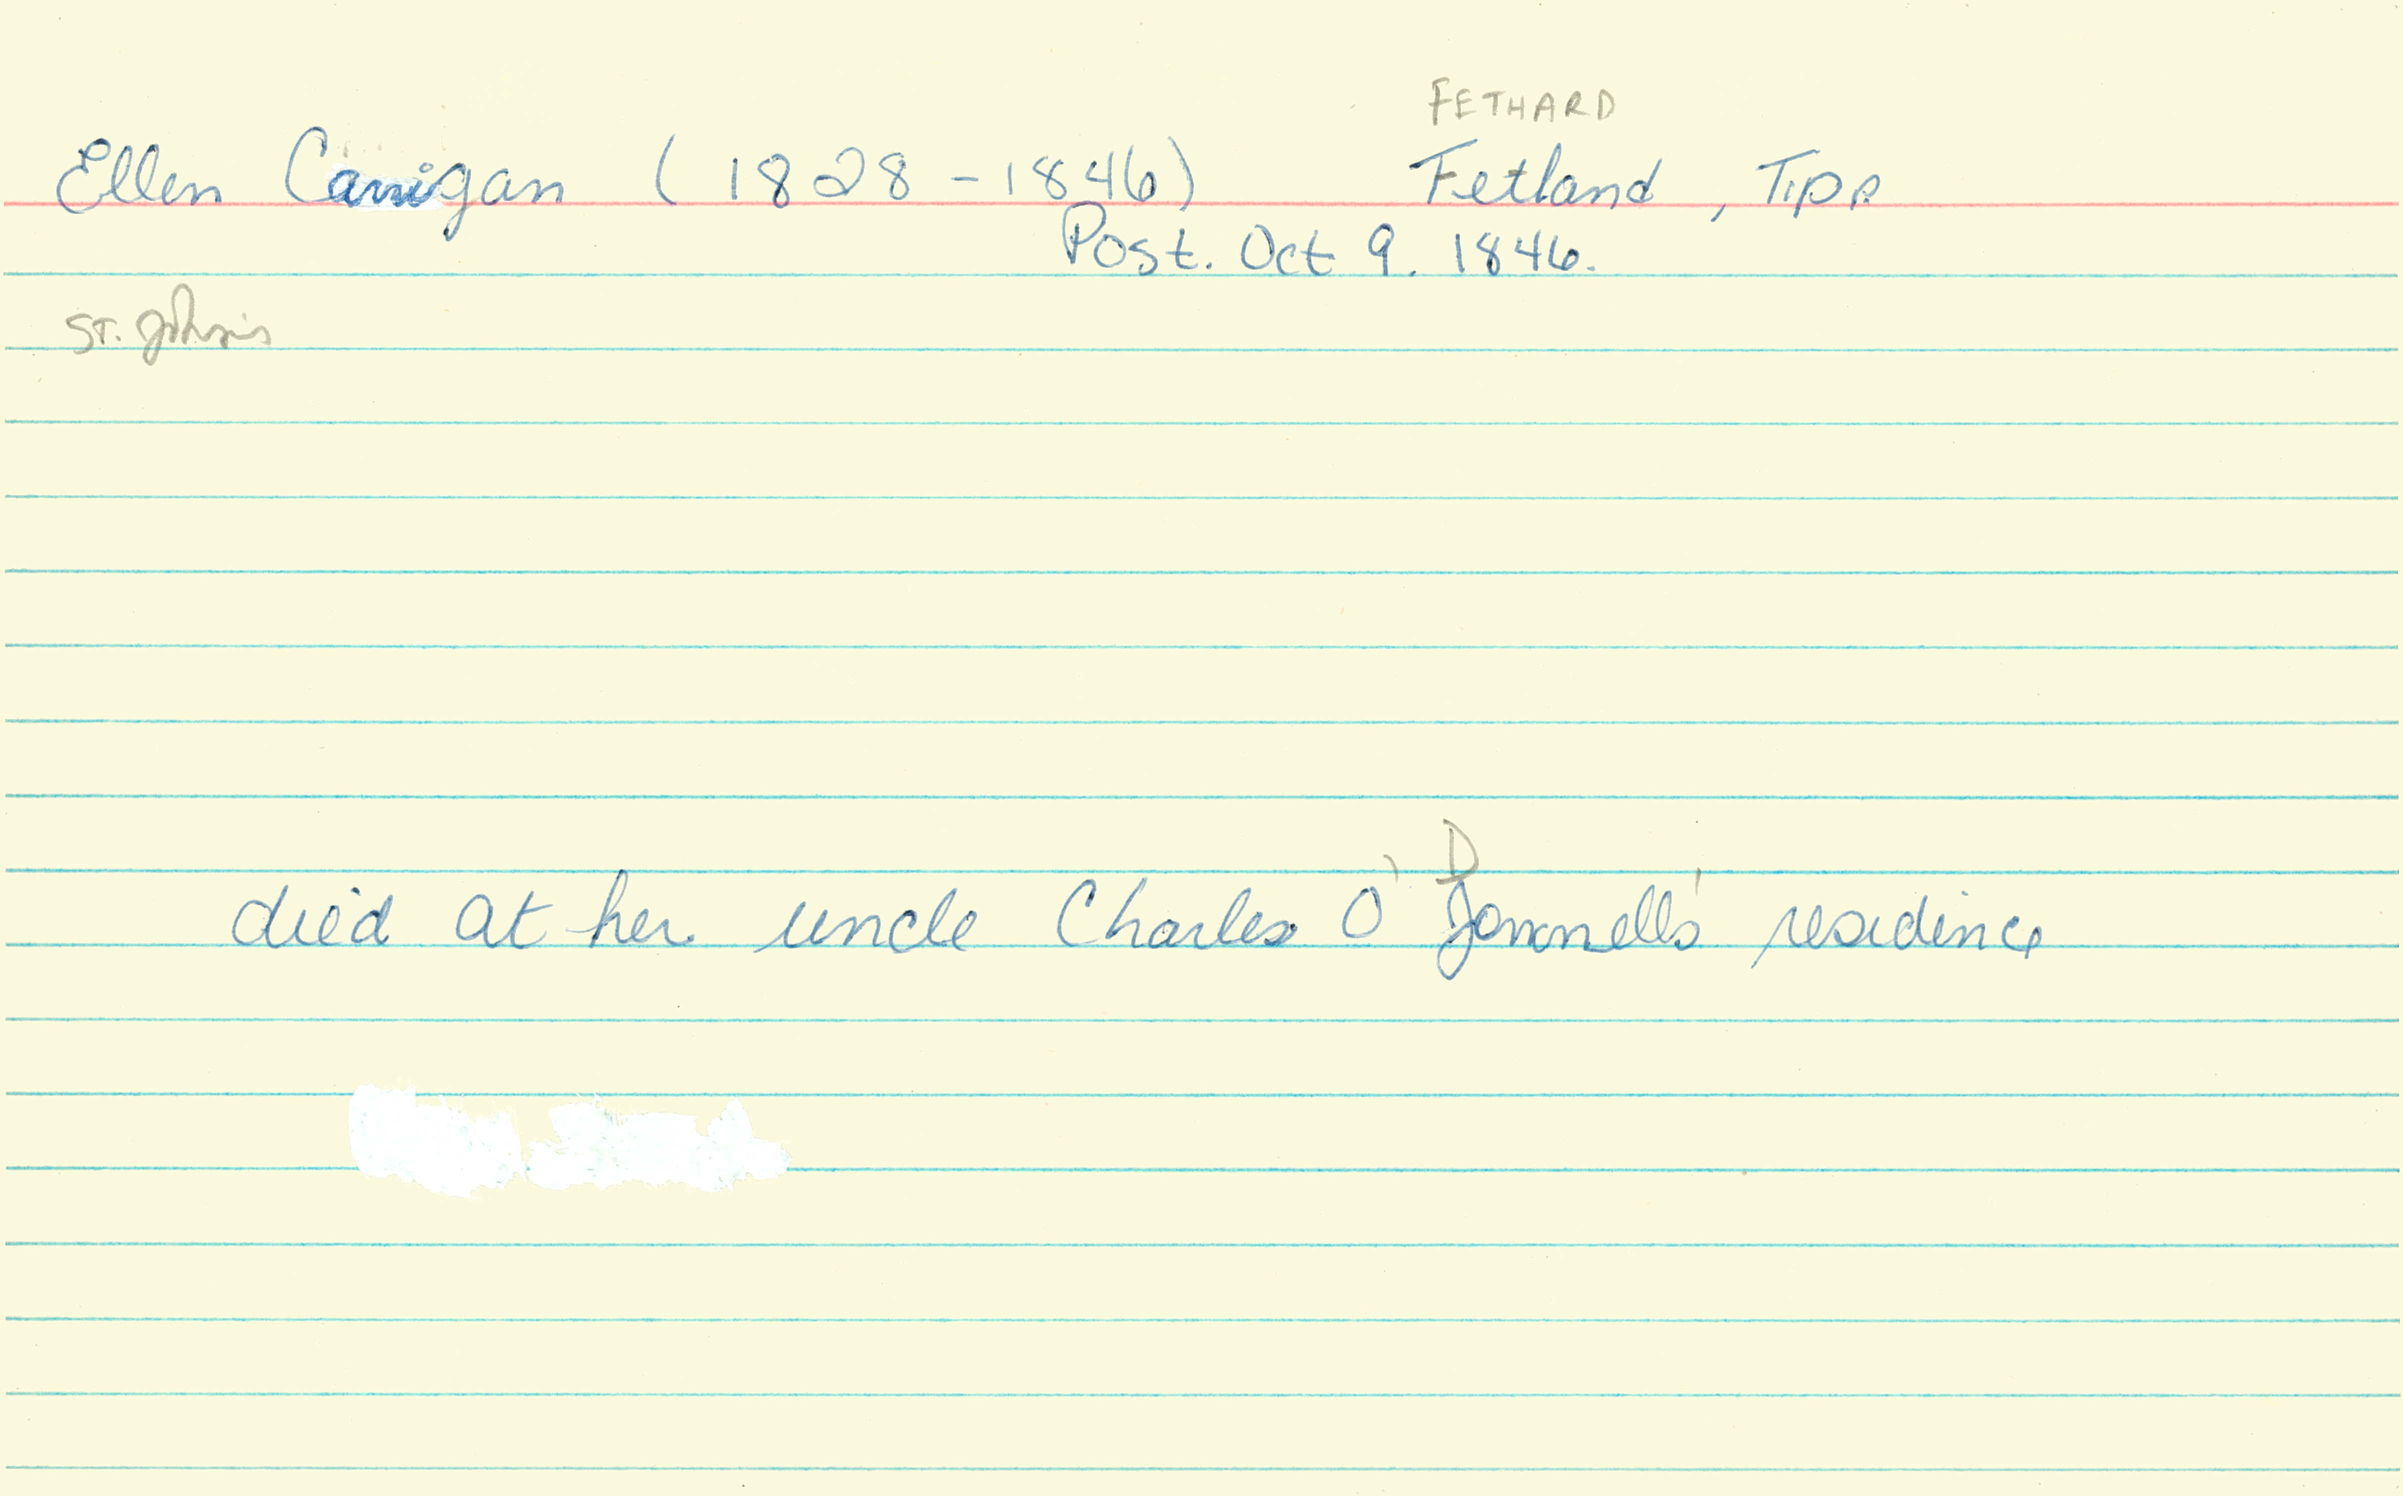 FETHARD
Ellen Carrigan (1828-1846) Fetland, Tipp
Post. Oct 9. 1846.
ST. John's
D
died at her uncle Charles O'Jonnell's residence